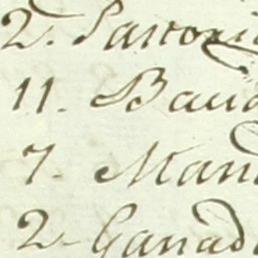 2. Partori
11. Baud
7. Mand
2. Ganad